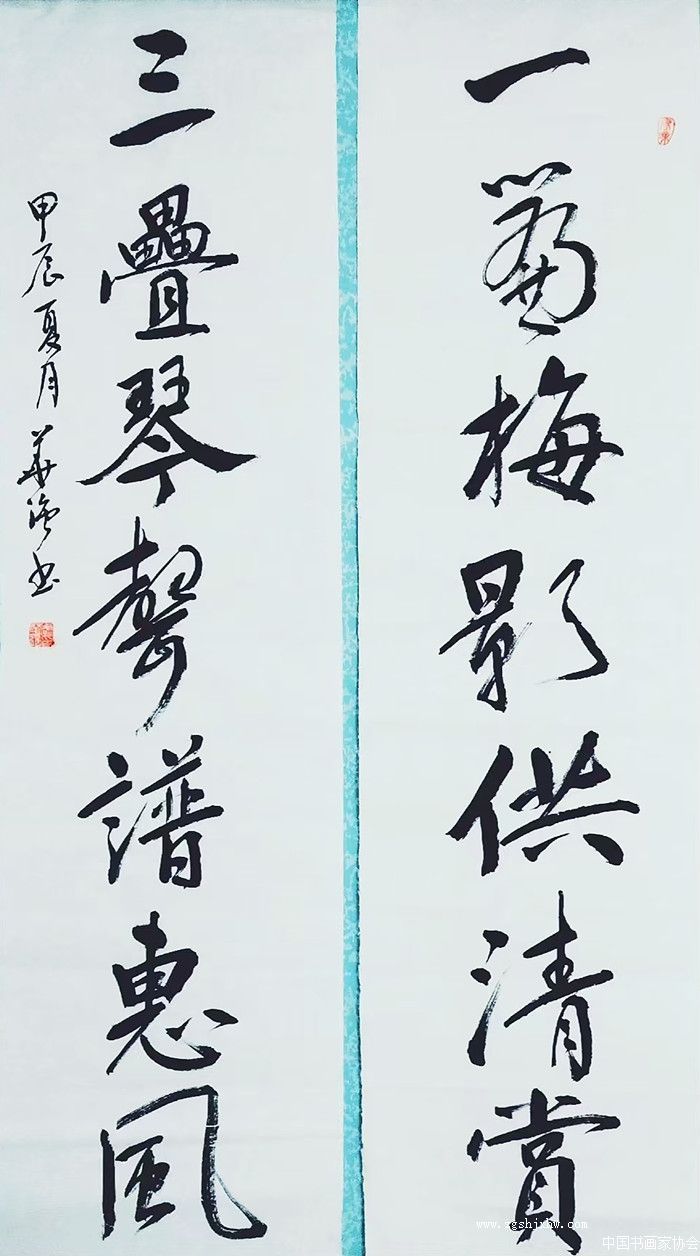 一簾梅影供清賞
三疊琴聲譜惠風
甲辰夏月華书
www.zgshjxhw.com
中国书画家协会